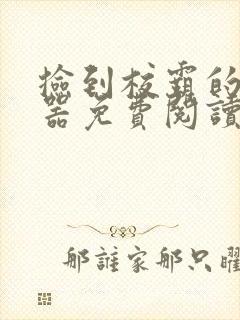 撿到校霸的
器免費閱讀
那誰家那只曜